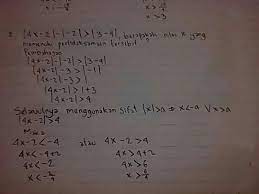 2. |4x-2|-|-2|>|3-4|, berapakah nilai x yang
memenuhi pertidaksamaan tersebut
Pembahasan
|4x-2|-|-2|>|3-4|
|4x-2|-2>|-1|
|4x-2|>1+3
|4x-2|>4
Selanjutnya menggunakan sifat |x|>a ⇒ x<-a ∨ x>a
|4x-2|>4
Maka
4x-2<-4 atau 4x-2>4
4x<-4+2 4x>4+2
4x<-2 4x>6
x<-2/4 x>6/4